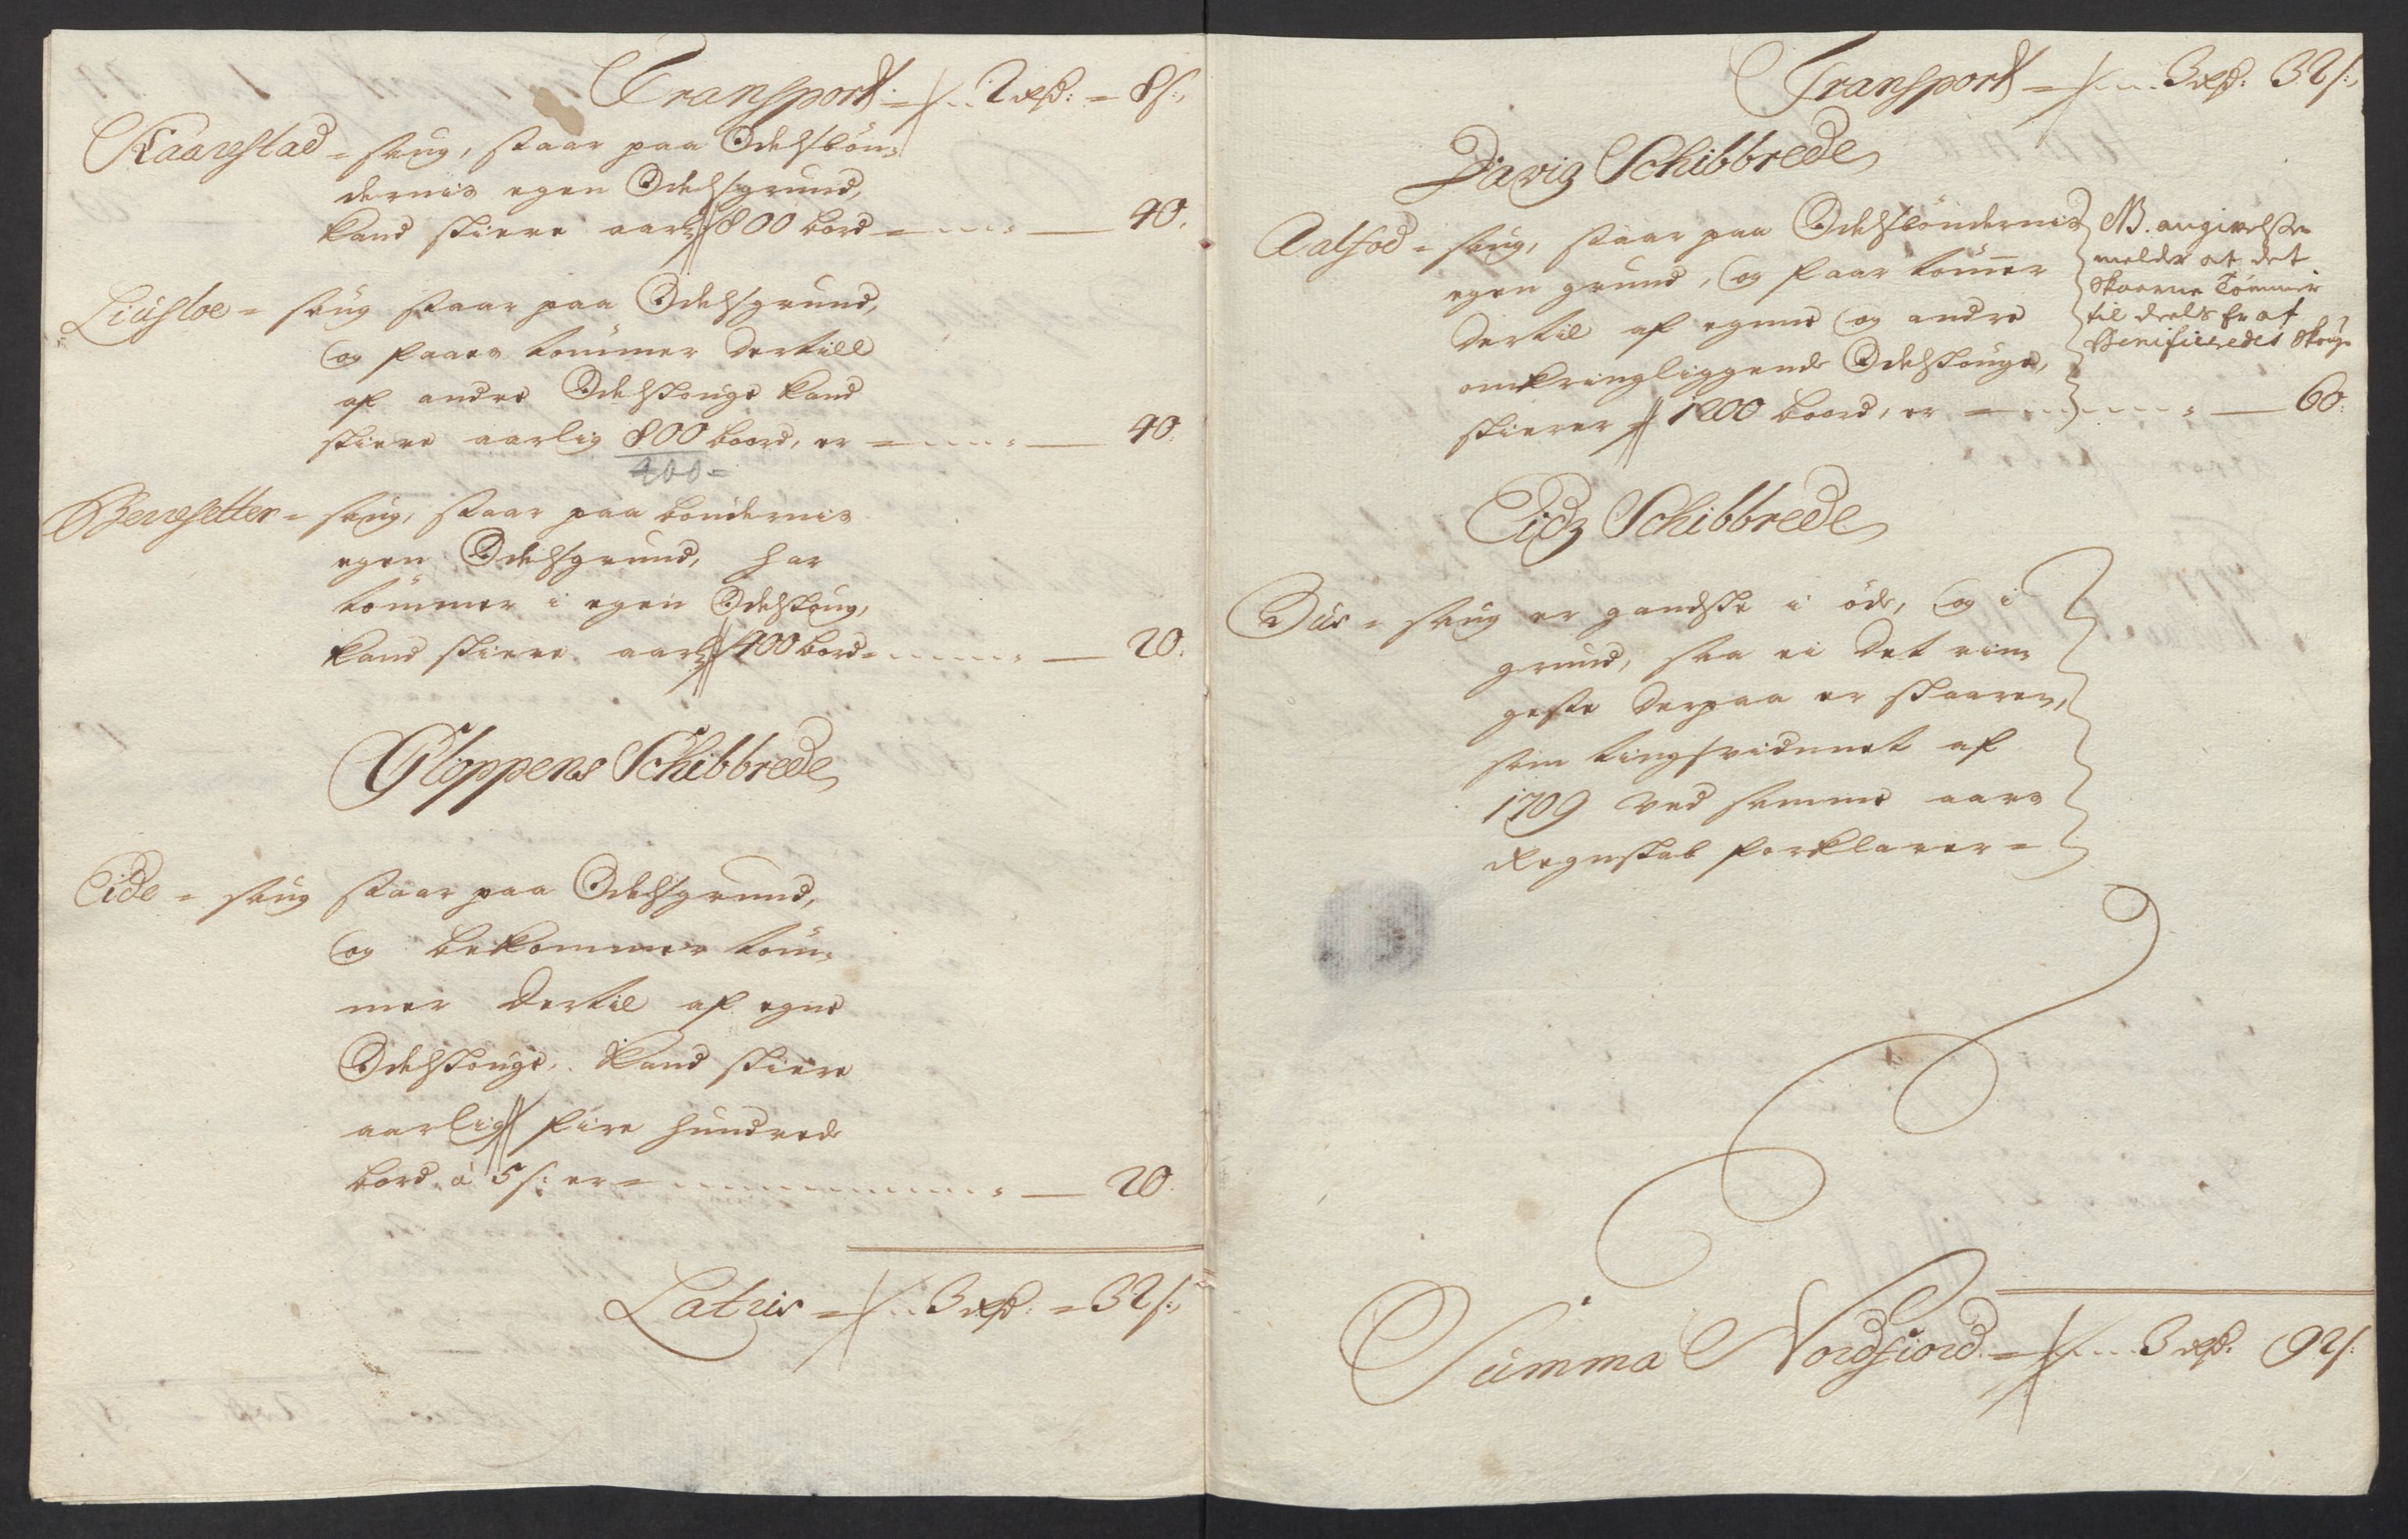 Transport = 2 rdr: = 8 s:
Kaarestad = saug, staar paa Odelsbøn-
dernis egen Odelsgrund,
kand skiere aarl: 800 bord = 40.
Liusloe = saug staar paa Odelsgrund,
og faaes tømmer dertill
af andre Odelskouge kand
skiere aarlig 800 boord, er = 40.
400 =
Berresetter = saug, staar paa bøndernis
egen Odelsgrund, har
tømmer i egen Odelskoug,
kand skiere aarl: 400 bord = 20.
Gloppens Schibbrede
Eide = saug staar paa Odelsgrund,
og bekommer tøm-
mer dertil af egne
Odelskouge, kand skiere
aarlig fire hundrede
bord à 5 s: er = 20.
Latris = 3 rdr: = 32 s:
Transport = 3 rdr: 32 s:
Davigs Schibbrede
Aalfod = saug, staar paa Odelsbøndernis
egen grund, og faar tømmer
dertil af egene og andre
omkringliggende Odelskouge,
skierer 1200 boord, er = 60.
NB. angivelsen
melder at det
skaarne Tømmer
til deels er af
Benificeredes skouge
Eids Schibbrede
Dus = saug er gandske i øde, og i
grund, saa ei det rin-
geste derpaa er skaaren,
som tingsvidnnet af
1709 ved samme aars
Regnskab forklarer =
Summa Nordfiord = 3 rdr. 92 s: